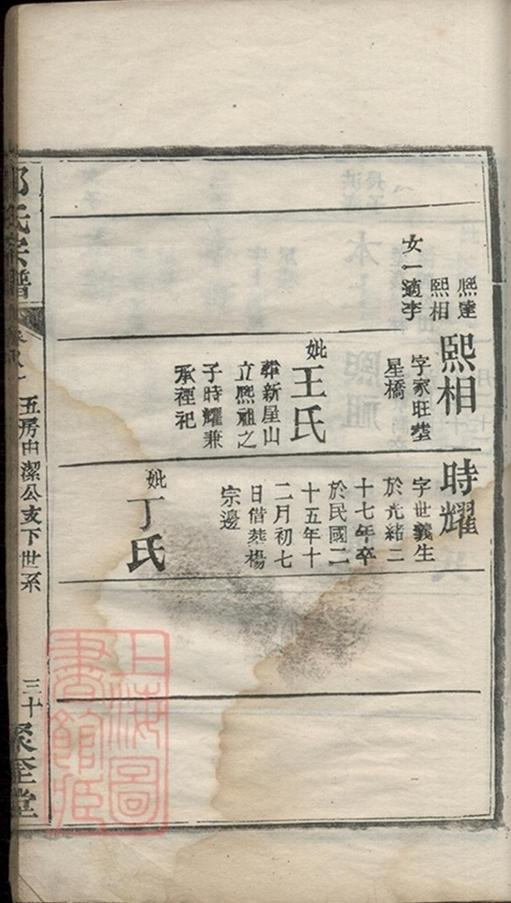 熙達
熙相
女一適李
熙相
字家旺塋
星橋
妣王氏
葬新屋山
立熙祖之
子時耀兼
承禋祀
時耀
字世義生
於光緒二
十七年卒
於民國二
十五年十
二月初七
日偕葬楊
宗邊
妣丁氏
氏宗譜
五房由潔公支下世系
三十
聚奎堂
上海圖
書館藏